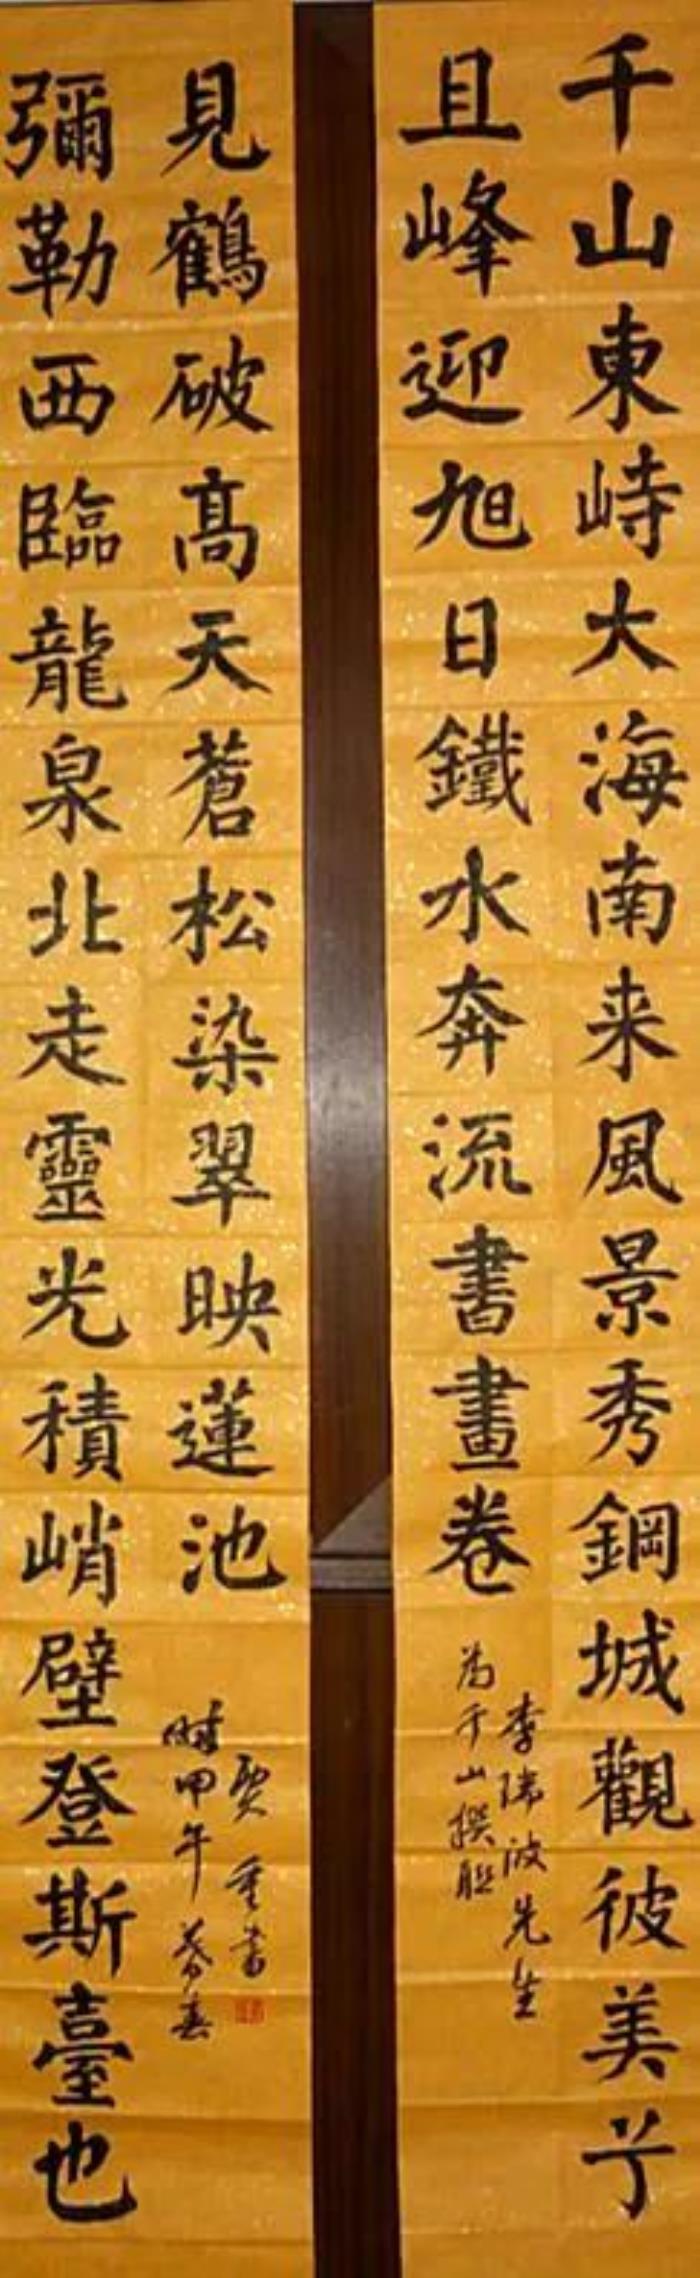 千山東峙大海南来風景秀鋼城觀彼美兮
且峰迎旭日鐵水奔流書畫卷
李波先生
為千山撰联
彌勒西臨龍泉北走靈光積峭壁登斯臺也
見鶴破髙天蒼松染翠映蓮池
時甲午暮春
賈重書